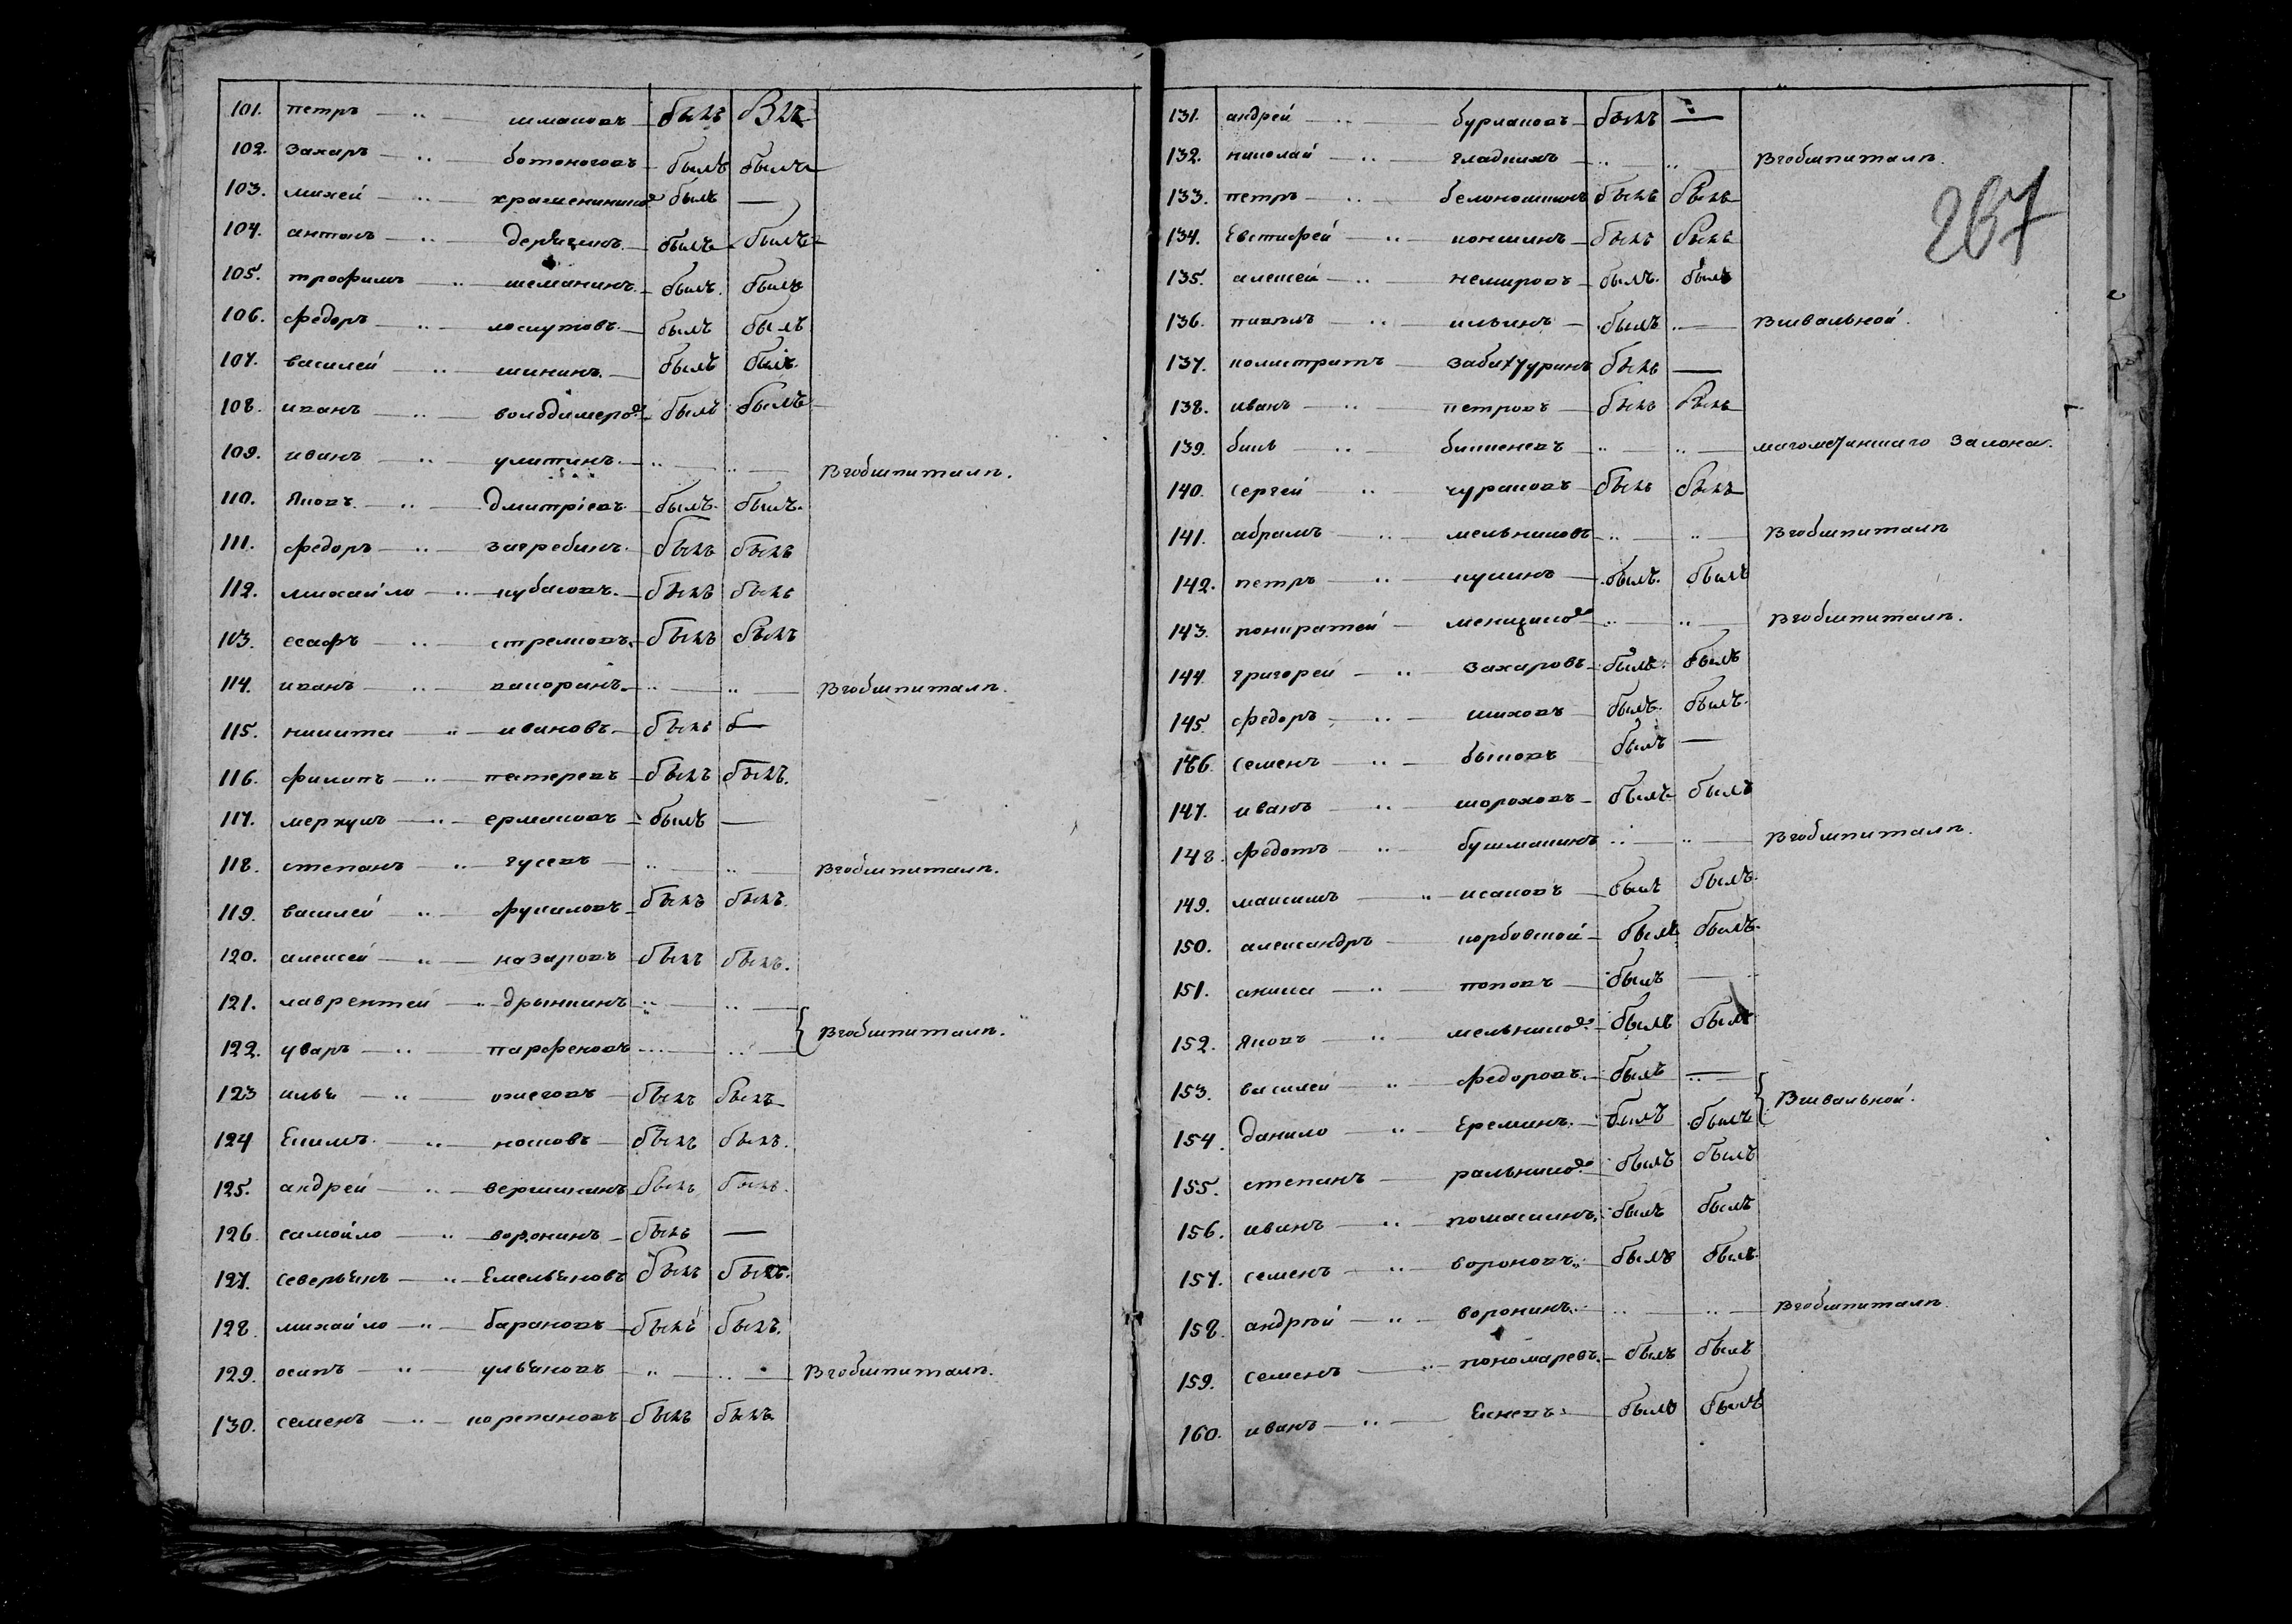 101. петръ — " — шмаковъ — былъ былъ
102. Захаръ — " — ботоноговъ — былъ былъ
103. михей — " — храменников былъ —
104. антонъ — " — дерягинъ — былъ былъ
105. трофимъ — " — шеманинъ — былъ былъ
106. федоръ — " — лоскутовъ — былъ былъ
107. василей — " — шининъ — былъ былъ
108. иванъ — " — володимеров — былъ былъ
109. иванъ — " — улитинъ — " — " — Вгобшпиталѣ.
110. Яковъ — " — Дмитріевъ былъ былъ
111. федоръ — " — загребинъ былъ былъ
112. михайло — " — кубасовъ — былъ былъ
113. есафъ — " — стремковъ былъ былъ
114. иванъ — " — какоринъ — " — " — Вгобшпиталѣ.
115. никита — " — ивановъ — былъ —
116. филипъ — " — петеревъ — былъ былъ
117. меркулъ — " — ермаковъ — былъ —
118. степанъ — " — гусевъ — " — " — Вгобшпиталѣ.
119. василей — " — фукаловъ — былъ былъ
120. алексей — " — назаровъ — былъ былъ
121. лаврентей — " — дрынкинъ " — " —
122. уваръ — " — парфеновъ " — " — Вгобшпиталѣ.
123 илья — " — ожеговъ — былъ былъ
124 Екимъ — " — носковъ — былъ былъ
125. андрей — " — вершининъ былъ былъ
126. самойло — " — воронинъ — былъ —
127. северьянъ — " — Емельяновъ былъ былъ
128. михайло — " — барановъ — былъ былъ
129. осипъ — " — ульяновъ — " — " — Вгобшпиталѣ.
130. семенъ — " — корепановъ былъ былъ
131. андрей — " — бурмаковъ — былъ —
132. николай — " — гладкихъ — " — " — Вгобшпиталѣ
267
133. петръ — " — белоношкинъ былъ былъ
134. Евстифей — " — коншинъ — былъ былъ
135. алексей — " — немировъ — былъ былъ
136. павелъ — " — ильинъ — былъ — Вшвальной.
137. колистратъ — былъ —
138. иванъ — " — петровъ — былъ былъ
139. бикъ — " — бикшеневъ " — " — магометанскаго Закона.
140. сергей — " — чураковъ — былъ былъ
141. абрамъ — " — мельниковъ — " — " Вгобшпиталѣ
142. петръ — " — кукинъ — былъ былъ
143. понкратей — менщиков " — " — Вгобшпиталѣ.
144. григорей — " — Захаровъ — былъ былъ
145. федоръ — " — шиховъ былъ былъ
146. семенъ — " — быковъ былъ —
147. иванъ — " — шороховъ — былъ былъ
148. федотъ — " — бушмакинъ " — " — Вгобшпиталѣ.
149. максимъ — " — исаковъ — былъ былъ
150. александръ — корбовской — былъ былъ
151. аника — " — поповъ — былъ —
152. Яковъ — " — мельников — былъ былъ
153. василей — " — федоровъ — былъ —
154. данило — " — Ереминъ — былъ былъ Вшвальной.
155. степанъ — ральников былъ былъ
156. иванъ — " — помаскинъ былъ былъ
157. семенъ — " — вороновъ былъ былъ
158. андрѣй — " — воронинъ — " — " — Вгобшпиталѣ
159. семенъ — " — пономаревъ — былъ былъ
160. иванъ — " — — былъ былъ